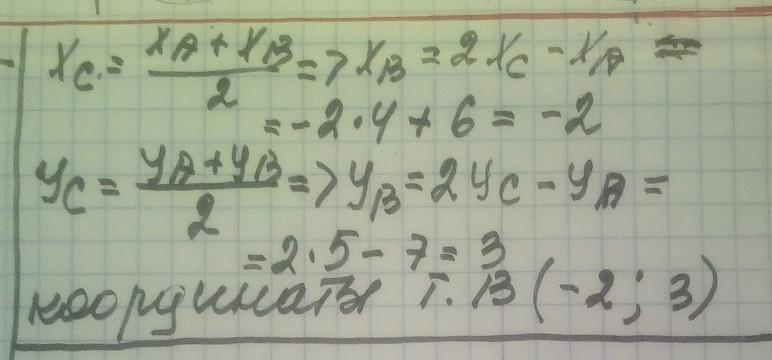 x_C = (x_A + x_B)/2 => x_B = 2x_C - x_A =
= -2·4 + 6 = -2
y_C = (y_A + y_B)/2 => y_B = 2y_C - y_A =
= 2·5 - 7 = 3
координаты т. В (-2; 3)